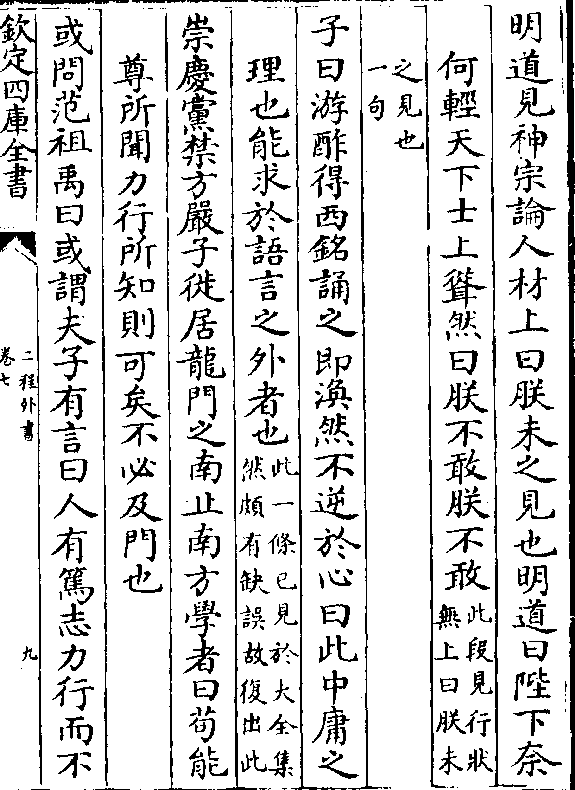 明道見神宗論人材上曰朕未之見也明道曰陛下奈
何輕天下士上聳然曰朕不敢朕不敢此段見行狀
無上曰朕未
之見也
一句
子曰游酢得西銘誦之即渙然不逆於心曰此中庸之
理也能求於語言之外者也此一條已見於大全集
然頗有缺誤故復出此
崇慶黨禁方嚴子徙居龍門之南止南方學者曰苟能
尊所聞力行所知則可矣不必及門也
或問范祖禹曰或謂夫子有言曰人有篤志力行而不
欽定四庫全書
二程外書
卷七
九